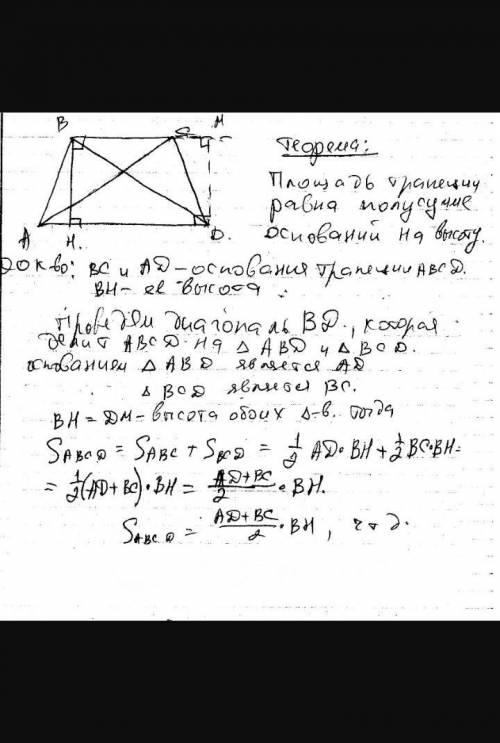 B C M
Теорема:
Площадь трапеции
равна полусумме
A H. D. оснований на высоту.
Док-во: BC и AD – основания трапеции ABCD.
BH – её высота
Проведём диагональ BD, которая
делит ABCD на △ ABD и △ BCD.
основанием △ ABD является AD
△ BCD является BC.
BH = DM – высота обоих △-в. тогда
S_ABCD = S_ABC + S_BCD = 1/2 AD · BH + 1/2 BC · BH =
= 1/2 (AD + BC) · BH = AD + BC / 2 · BH.
S_ABCD = AD + BC / 2 · BH, ч т д.